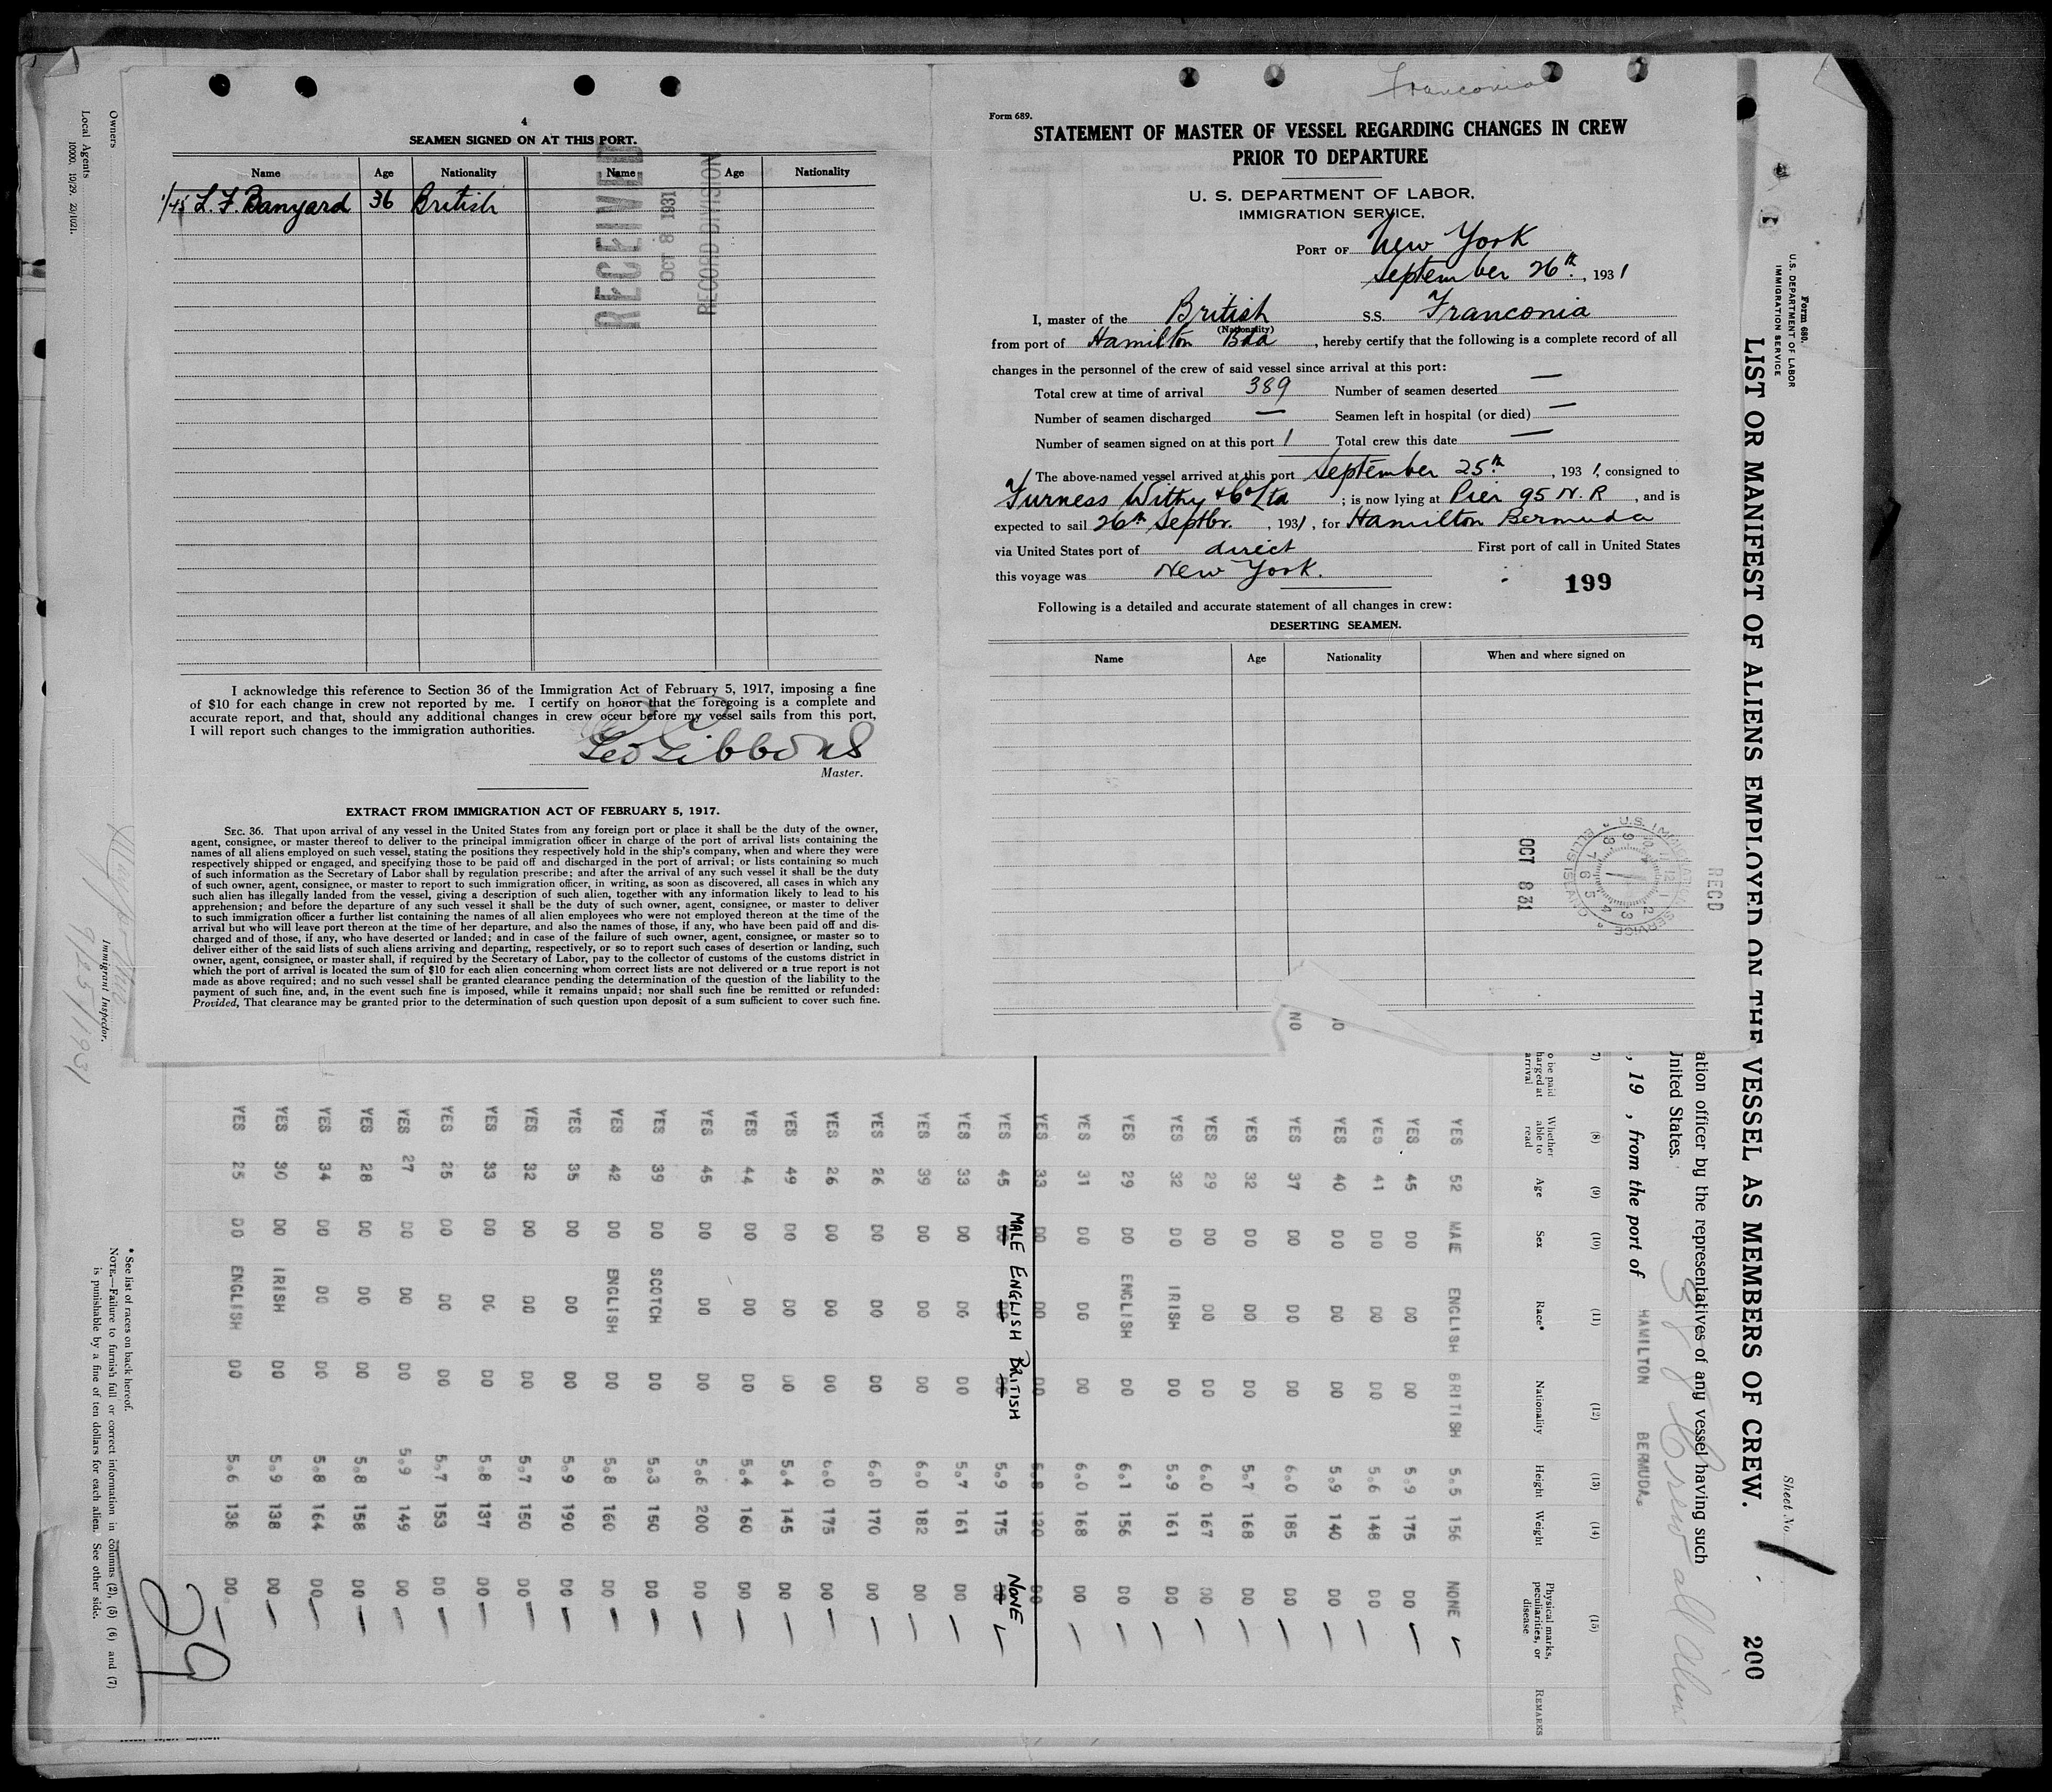 4
SEAMEN SIGNED ON AT THIS PORT.
Name Age Nationality Name Age Nationality
1/45 L. F. Banyard 36 British
RECEIVED
OCT 8 1931
RECORD DIVISION
I acknowledge this reference to Section 36 of the Immigration Act of February 5, 1917, imposing a fine
of $10 for each change in crew not reported by me. I certify on honor that the foregoing is a complete and
accurate report, and that, should any additional changes in crew occur before my vessel sails from this port,
I will report such changes to the immigration authorities.
Geo Gibbons
Master.
EXTRACT FROM IMMIGRATION ACT OF FEBRUARY 5, 1917.
SEC. 36. That upon arrival of any vessel in the United States from any foreign port or place it shall be the duty of the owner,
agent, consignee, or master thereof to deliver to the principal immigration officer in charge of the port of arrival lists containing the
names of all aliens employed on such vessel, stating the positions they respectively hold in the ship's company, when and where they were
respectively shipped or engaged, and specifying those to be paid off and discharged in the port of arrival; or lists containing so much
of such information as the Secretary of Labor shall by regulation prescribe; and after the arrival of any such vessel it shall be the duty
of such owner, agent, consignee, or master to report to such immigration officer, in writing, as soon as discovered, all cases in which any
such alien has illegally landed from the vessel, giving a description of such alien, together with any information likely to lead to his
apprehension; and before the departure of any such vessel it shall be the duty of such owner, agent, consignee, or master to deliver
to such immigration officer a further list containing the names of all alien employees who were not employed thereon at the time of the
arrival but who will leave port thereon at the time of her departure, and also the names of those, if any, who have been paid off and dis-
charged and of those, if any, who have deserted or landed; and in case of the failure of such owner, agent, consignee, or master so to
deliver either of the said lists of such aliens arriving and departing, respectively, or so to report such cases of desertion or landing, such
owner, agent, consignee, or master shall, if required by the Secretary of Labor, pay to the collector of customs of the customs district in
which the port of arrival is located the sum of $10 for each alien concerning whom correct lists are not delivered or a true report is not
made as above required; and no such vessel shall be granted clearance pending the determination of the question of the liability to the
payment of such fine, and, in the event such fine is imposed, while it remains unpaid; nor shall such fine be remitted or refunded:
Provided, That clearance may be granted prior to the determination of such question upon deposit of a sum sufficient to cover such fine.
Franconia
Form 689.
STATEMENT OF MASTER OF VESSEL REGARDING CHANGES IN CREW
PRIOR TO DEPARTURE
U. S. DEPARTMENT OF LABOR,
IMMIGRATION SERVICE,
PORT OF New York
September 26th, 1931
I, master of the British S.S. Franconia
(Nationality)
from port of Hamilton Bda, hereby certify that the following is a complete record of all
changes in the personnel of the crew of said vessel since arrival at this port:
Total crew at time of arrival 389 Number of seamen deserted —
Number of seamen discharged — Seamen left in hospital (or died) —
Number of seamen signed on at this port 1 Total crew this date —
The above-named vessel arrived at this port September 25th, 1931, consigned to
Furness Withy & Co Ltd; is now lying at Pier 95 N. R, and is
expected to sail 26th Septbr., 1931, for Hamilton Bermuda
via United States port of direct First port of call in United States
this voyage was New York.
199
Following is a detailed and accurate statement of all changes in crew:
DESERTING SEAMEN.
Name Age Nationality When and where signed on
OCT 8 31
U.S. IMMIGRATION SERVICE
ELLIS ISLAND
RECD
Form 680.
U.S. DEPARTMENT OF LABOR
IMMIGRATION SERVICE
Sheet No. 1
LIST OR MANIFEST OF ALIENS EMPLOYED ON THE VESSEL AS MEMBERS OF CREW. 200
ation officer by the representatives of any vessel having such
United States.
388 Crew all Aliens
, 19 , from the port of HAMILTON BERMUDA.
(7) (8) (9) (10) (11) (12) (13) (14) (15)
o be paid
harged at
arrival
Whether able to read Age Sex Race* Nationality Height Weight Physical marks, peculiarities, or disease REMARKS
YES 52 MALE ENGLISH BRITISH 5.5 156 NONE
YES 45 DO DO DO 5.9 175 DO
YES 41 DO DO DO 5.6 148 DO
YES 40 DO DO DO 5.9 140 DO
NO YES 37 DO DO DO 6.0 185 DO
YES 32 DO DO DO 5.7 168 DO
YES 29 DO DO DO 6.0 167 DO
YES 32 DO IRISH DO 5.9 161 DO
YES 29 DO ENGLISH DO 6.1 156 DO
YES 31 DO DO DO 6.0 168 DO
YES 33 DO DO DO 5.8 130 DO
YES 45 MALE ENGLISH BRITISH 5.9 175 NONE
YES 33 DO DO DO 5.7 161 DO
YES 39 DO DO DO 6.0 182 DO
YES 26 DO DO DO 6.0 170 DO
YES 26 DO DO DO 6.0 175 DO
YES 49 DO DO DO 5.4 145 DO
YES 44 DO DO DO 5.4 160 DO
YES 45 DO DO DO 5.6 200 DO
YES 39 DO SCOTCH DO 5.3 150 DO
YES 42 DO ENGLISH DO 5.8 160 DO
YES 35 DO DO DO 5.9 190 DO
YES 32 DO DO DO 5.7 150 DO
YES 33 DO DO DO 5.8 137 DO
YES 25 DO DO DO 5.7 153 DO
YES 27 DO DO DO 5.9 149 DO
YES 28 DO DO DO 5.8 158 DO
YES 34 DO DO DO 5.8 164 DO
YES 30 DO IRISH DO 5.9 138 DO
YES 25 DO ENGLISH DO 5.6 138 DO.
59
* See list of races on back hereof.
NOTE.—Failure to furnish full or correct information in columns (2), (5) (6) and (7)
is punishable by a fine of ten dollars for each alien. See other side.
Immigrant Inspector.
9/25/1931
Owners
Local Agents
10000. 10/29. 23/1021.